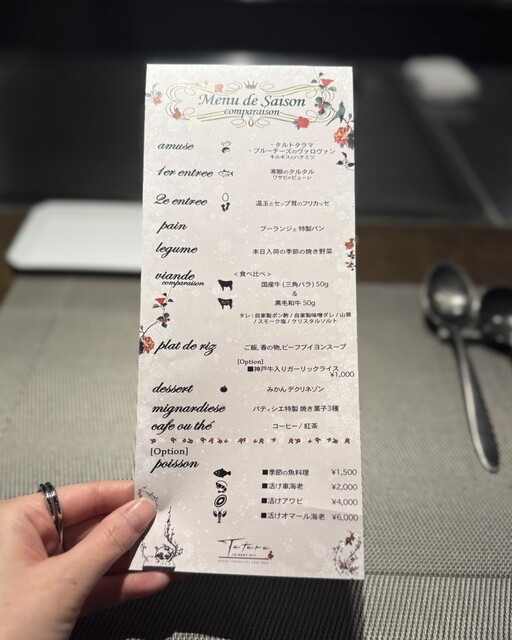 Menu de Saison
comparaison
amuse ・タルトタラマ
・ブルーチーズのヴァロヴァン
キルギスのハチミツ
1er entree 寒鰤のタルタル
ワサビのピューレ
2e entree 温玉とセップ茸のフリカッセ
pain ブーランジェ特製パン
legume 本日入荷の季節の焼き野菜
viande <食べ比べ>
comparaison 国産牛(三角バラ) 50g
&
黒毛和牛 50g
タレ:自家製ポン酢/自家製味噌ダレ/山葵
/スモーク塩/クリスタルソルト
plat de riz ご飯,香の物,ビーフブイヨンスープ
[Option]
■神戸牛入りガーリックライス
¥1,000
dessert みかん デクリネゾン
mignardiese パティシエ特製 焼き菓子3種
cafe ou thé コーヒー/紅茶
[Option]
poisson ■季節の魚料理 ¥1,500
■活け車海老 ¥2,000
■活けアワビ ¥4,000
■活けオマール海老 ¥6,000